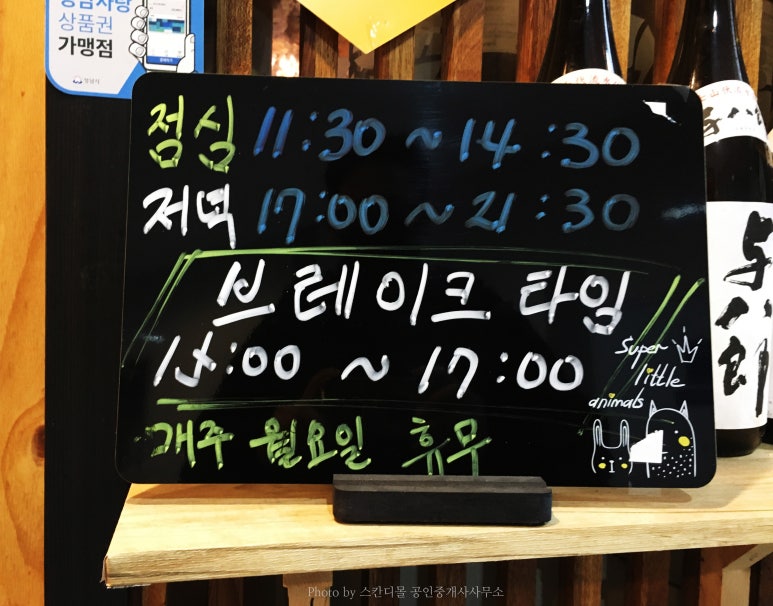 상품권
가맹점
점심 11:30 ~ 14:30
저녁 17:00 ~ 21:30
브레이크 타임
15:00 ~ 17:00
Super
little
animals
매주 월요일 휴무
与八郎
Photo by 스칸디몰 공인중개사사무소